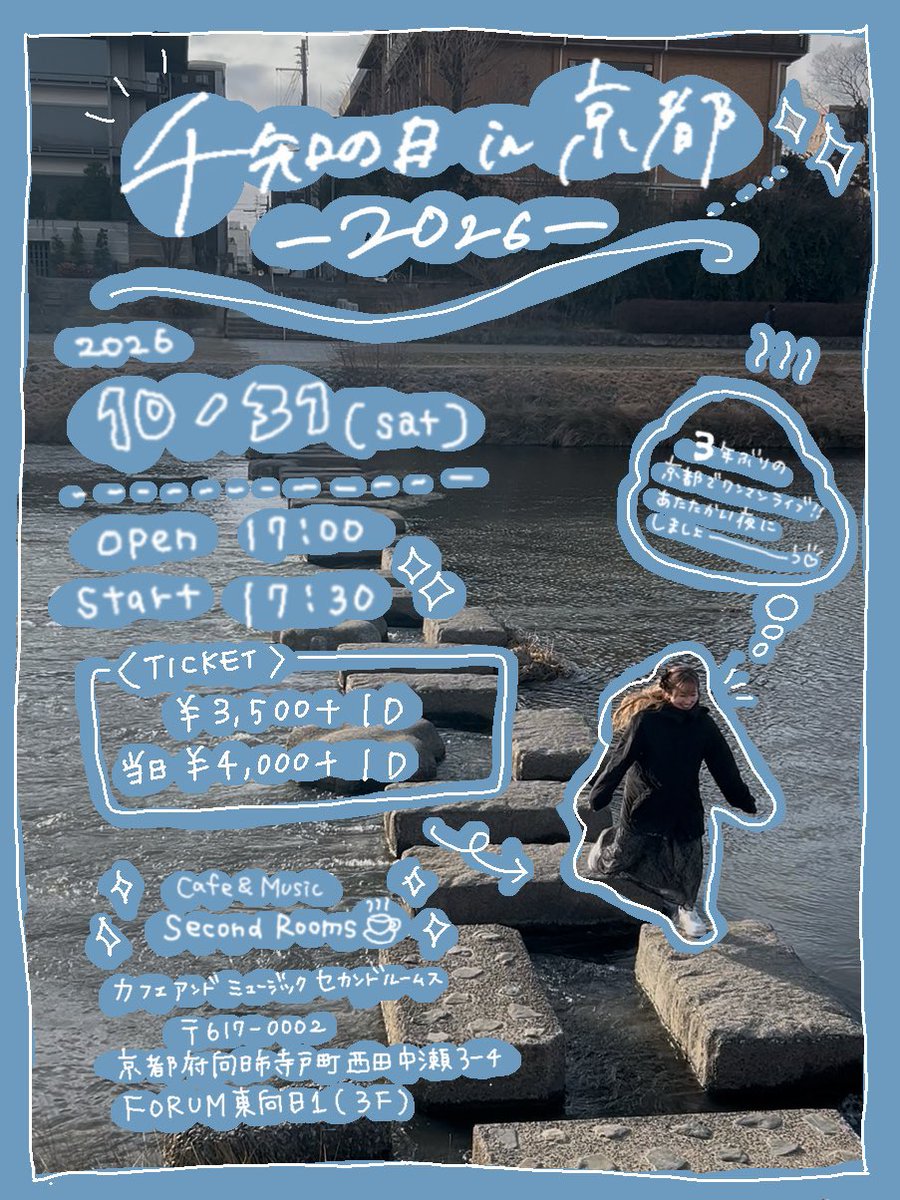 千知の日 in 京都
-2026-
2026
10/31(sat)
open 17:00
start 17:30
〈TICKET〉
¥3,500+1D
当日 ¥4,000+1D
3年ぶりの
京都でワンマンライブ!!
あたたかい夜に
しましょーーーう
Cafe & Music
Second Rooms
カフェアンドミュージック セカンドルームス
〒617-0002
京都府向日市寺戸町西田中瀬3-4
FORUM東向日1(3F)